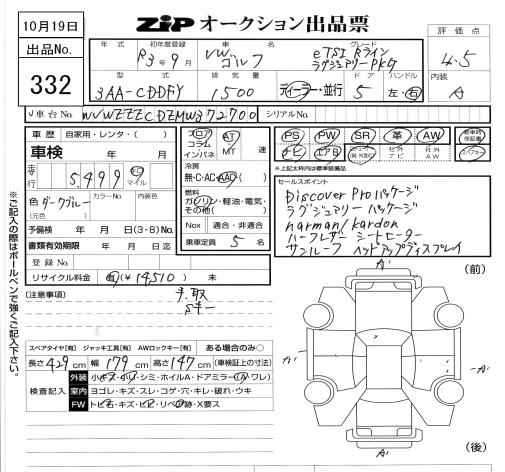 10月19日
ZIP オークション出品票
評価点
4.5
内装
A
出品No.
332
年式 初年度登録 車名 グレード
R3年9月 VW ゴルフ eTSI Rライン
ラグジュアリーPKG
型式 排気量 ドア ハンドル
3AA-CDDFY 1500 ディーラー・並行 5 左・右
車台No. WVWZZZCDZMW372700 シリアルNo.
車歴 自家用・レンタ( )
車検 年 月
走行 5,499 km マイル
色 ダークブルー カラーNo. 内装色
(元色)
予備検 年 月 日(3・8)No.
書類有効期限 年 月 日迄
登録No.
リサイクル料金 有(¥14510) 未
フロア コラム インパネ
AT MT 速
冷房
無・C・AC・AAC
燃料
ガソリン・軽油・電気・その他( )
Nox 適合・非適合
乗車定員 5 名
PS PW SR 革 AW 新車時保証書
ナビ エアB 社外ナビ 社外AW
*上記太枠内は標準装備品
セールスポイント
Discover Proパッケージ
ラグジュアリーパッケージ
harman/kardon
ハーフレザー シートヒーター
サンルーフ ヘッドアップディスプレイ
(注意事項)
手.取
Sキー
スペアタイヤ[有] ジャッキ工具[有] AWロックキー[有] ある場合のみ○
長さ 429 cm 幅 179 cm 高さ 147 cm (車検証上の寸法)
検査記入
外装 小キズ・小凹・シミ・ホイルA・ドアミラー(A・ワレ)
室内 ヨゴレ・キズ・スレ・コゲ・穴・キレ・破れ・ウキ
FW トビ石・キズ・ヒビ・リペア跡・X要ス
※ご記入の際はボールペンで強くご記入下さい。
(前)
A'
A'
A'
A'
(後)